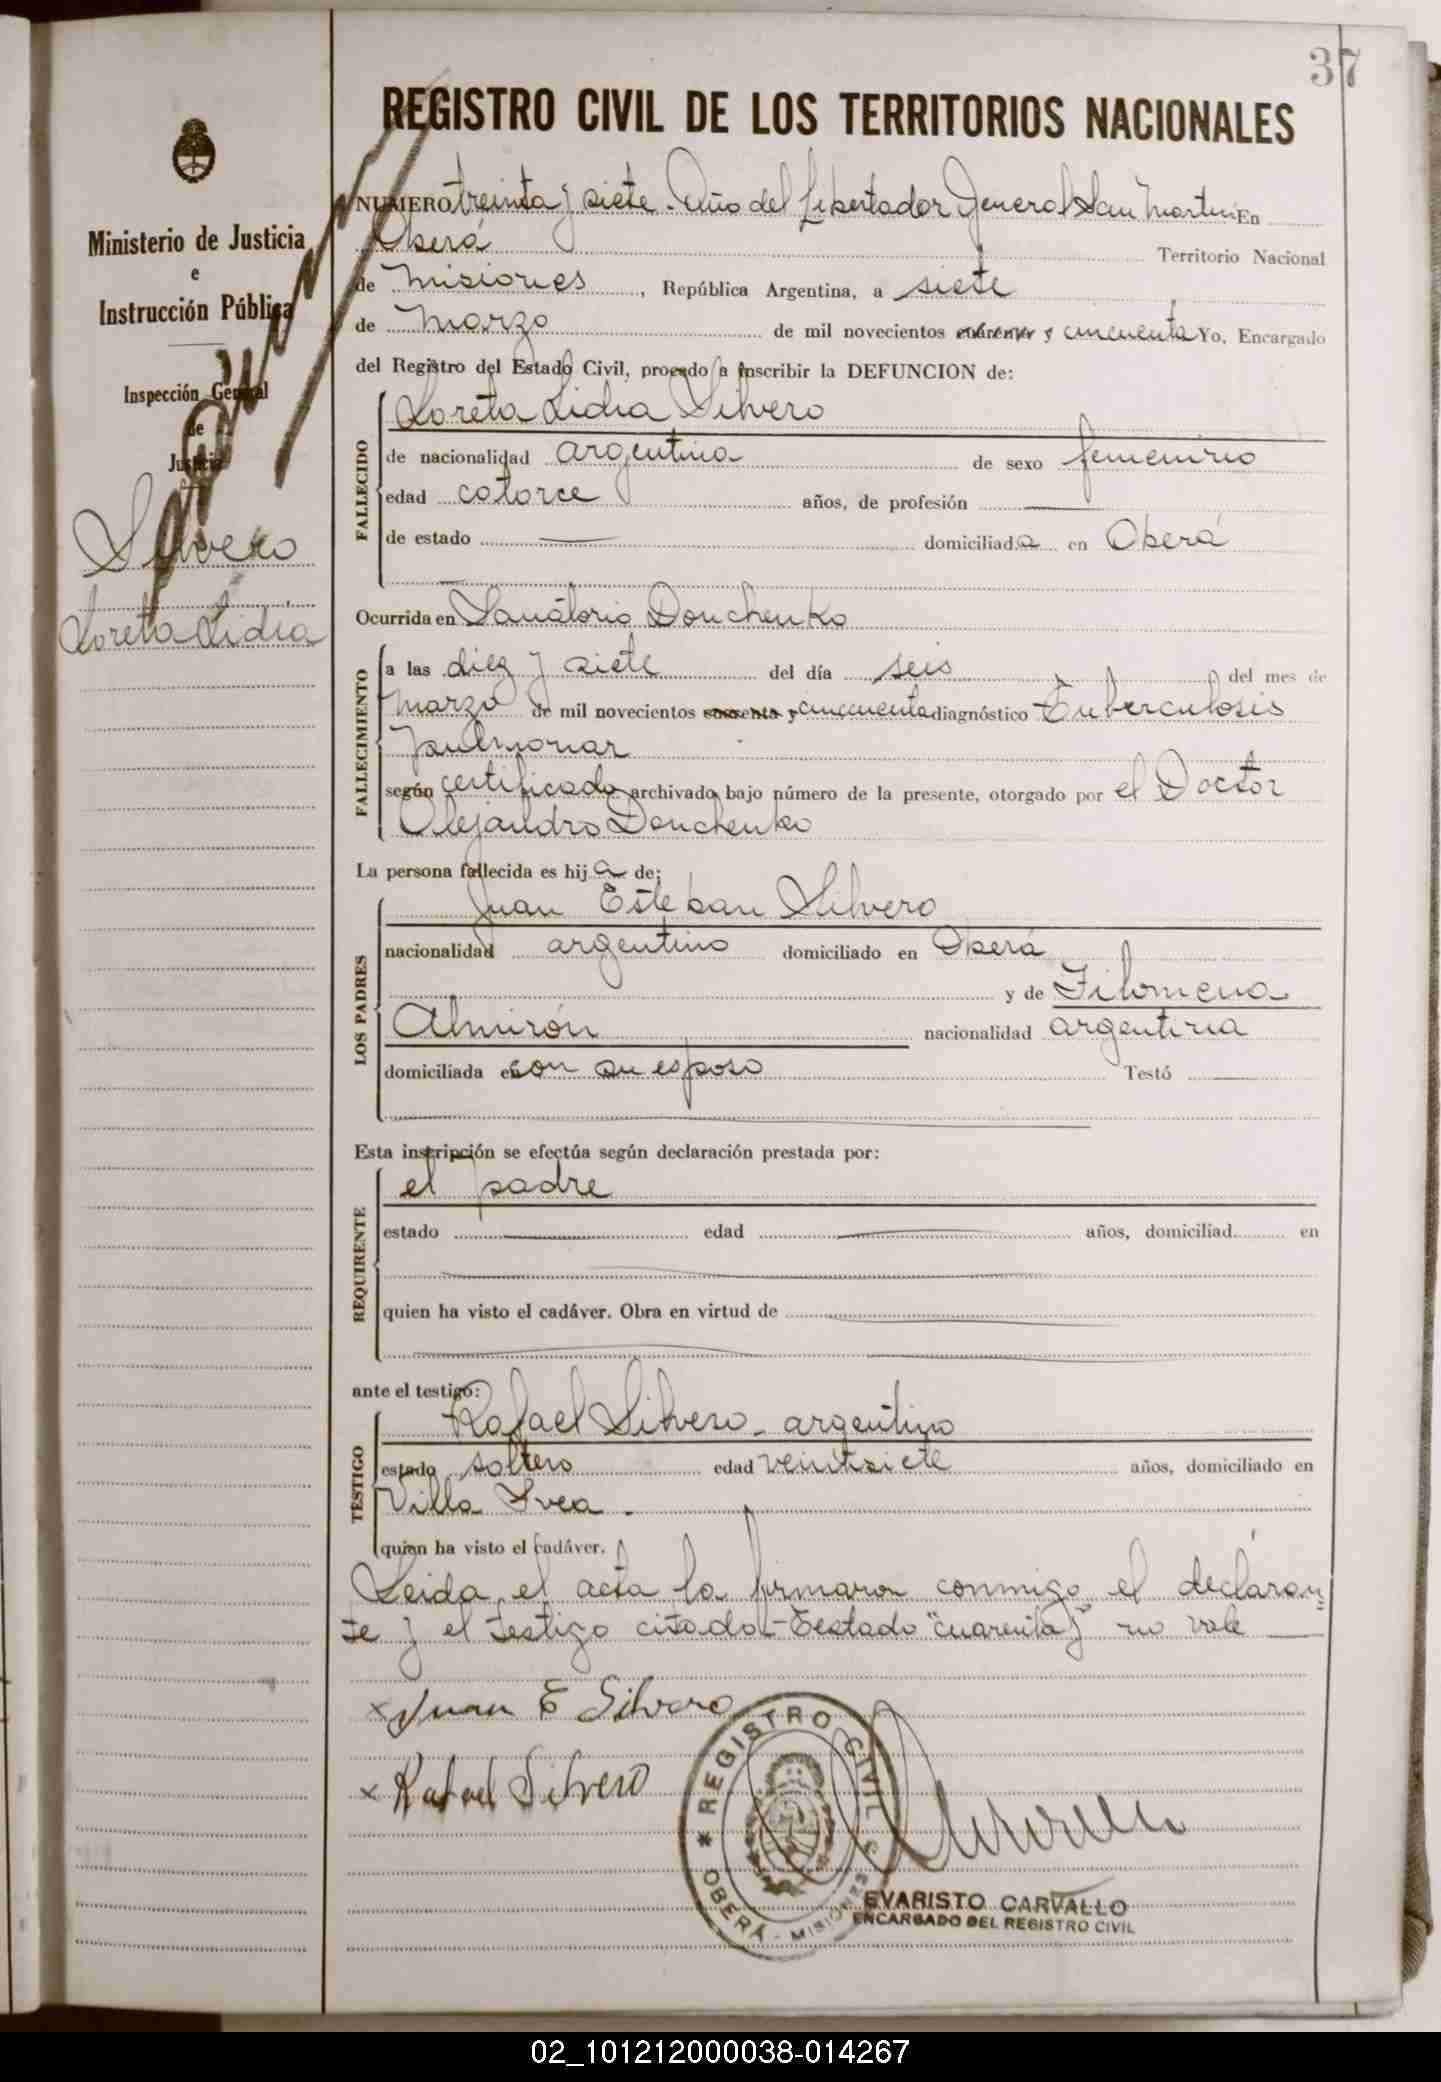 37
REGISTRO CIVIL DE LOS TERRITORIOS NACIONALES
Ministerio de Justicia
e
Instrucción Pública
Inspección General
de
Justicia
Silvero
Loreta Lidia
NUMERO treinta y siete. Año del Libertador General San Martin En
Oberá Territorio Nacional
de Misiones, República Argentina, a siete
de Marzo de mil novecientos cuarenta y cincuenta Yo, Encargado
del Registro del Estado Civil, procedo a inscribir la DEFUNCION de:
FALLECIDO
Loreta Lidia Silvero
de nacionalidad argentina de sexo femenino
edad catorce años, de profesión
de estado domiciliada en Oberá
Ocurrida en Sanatorio Donchenko
FALLECIMIENTO
a las diez y siete del día seis del mes de
Marzo de mil novecientos cuarenta y cincuenta diagnóstico Tuberculosis
pulmonar
según certificado archivado bajo número de la presente, otorgado por el Doctor
Alejandro Donchenko
La persona fallecida es hija de:
LOS PADRES
Juan Esteban Silvero
nacionalidad argentino domiciliado en Oberá
y de Filomena
Almirón nacionalidad argentina
domiciliada en con su esposo Testó
Esta inscripción se efectúa según declaración prestada por:
REQUIRENTE
el padre
estado edad años, domiciliad en
quien ha visto el cadáver. Obra en virtud de
ante el testigo:
TESTIGO
Rafael Silvero - argentino
estado soltero edad veintisiete años, domiciliado en
Villa Svea.
quien ha visto el cadáver.
Leida el acta la firmaron conmigo el declaran=
te y el testigo citado - Testado "cuarenta y" no vale
x Juan E Silvero
x Rafael Silvero
REGISTRO CIVIL
OBERÁ - MISIONES
EVARISTO CARVALLO
ENCARGADO DEL REGISTRO CIVIL
02_101212000038-014267